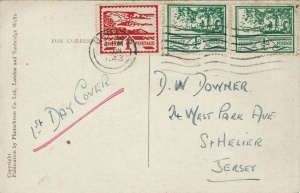 FOR CORRES
POSTAGE
POSTAGE
POSTAGE
1st DAY COVER
D. W DOWNER
24 WEST PARK AVE
ST HELIER
JERSEY
Copyright
Publication by Photochrom Co. Ltd., London and Tunbridge Wells